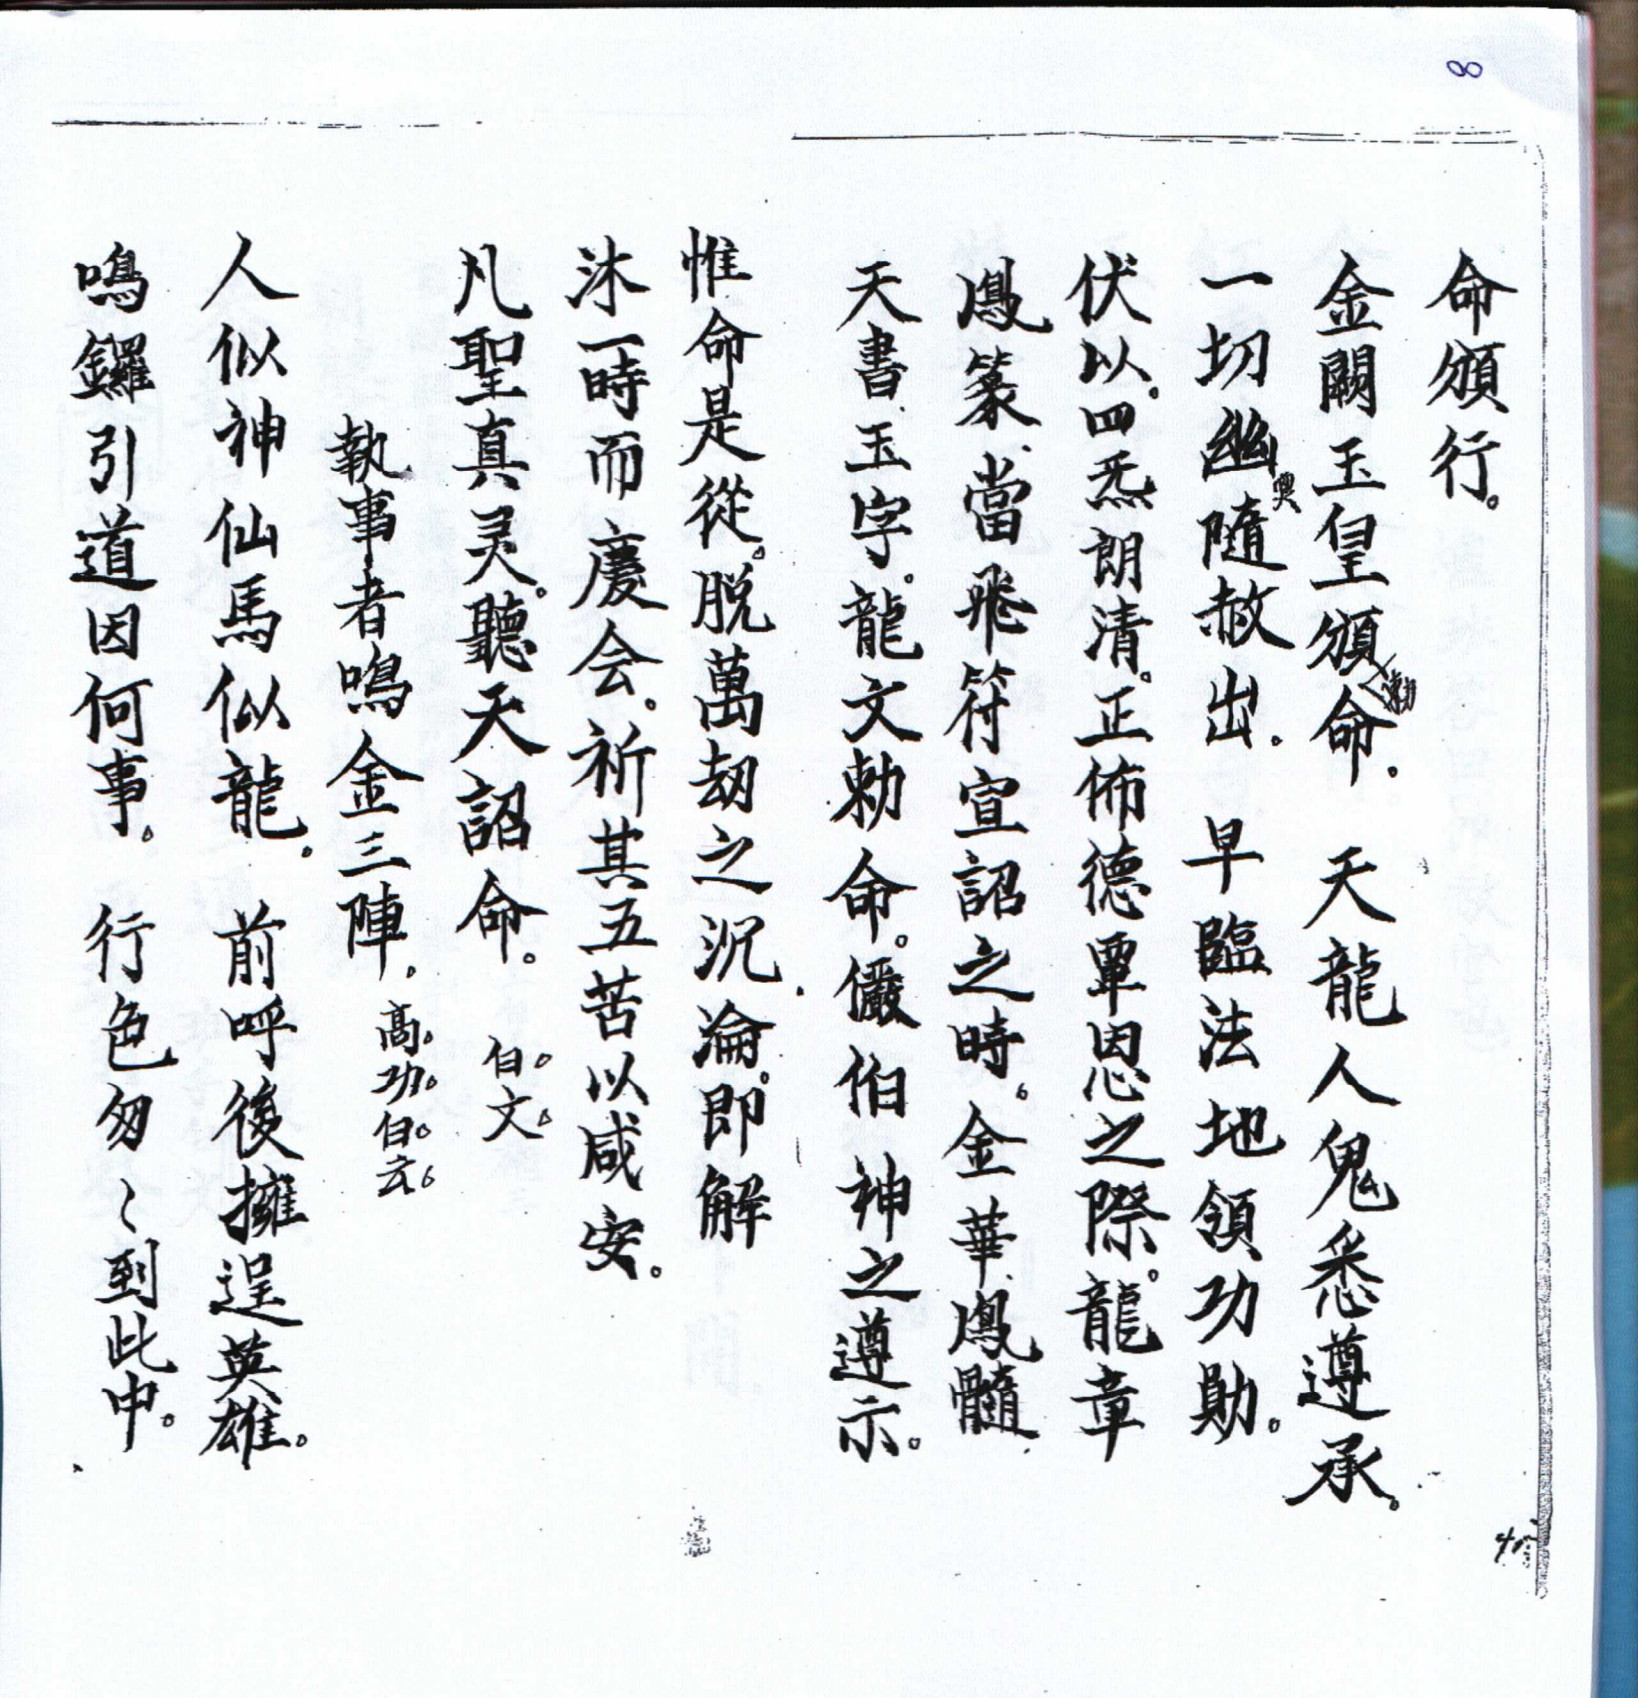 8
命頒行。
金闕玉皇頒勅命。天龍人鬼悉遵承。
一切幽魂隨赦出。早臨法地領功勛。
伏以。四炁朗清。正佈德覃恩之際。龍章
鳳篆。當飛符宣詔之時。金華鳳髓
天書玉字。龍文勅命。儼伯神之遵示。
惟命是從。脱萬劫之沉淪。即解
沐一時而慶会。祈其五苦以咸安。
凡聖真灵。聽天詔命。白。文。
執事者鳴金三陣。高。功。白。云。
人似神仙馬似龍。前呼後擁逞英雄。
鳴鑼引道因何事。行色匆〻到此中。